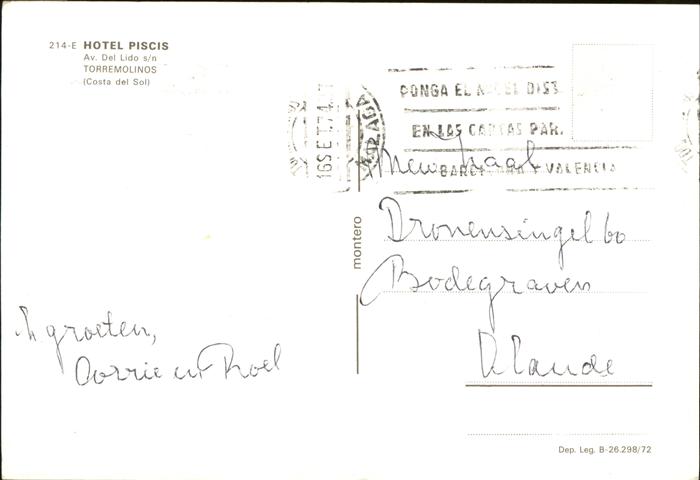 214-E HOTEL PISCIS
Av. Del Lido s/n
TORREMOLINOS
(Costa del Sol)
16 SET. 74
PONGA EL DIST.
EN LAS CARTAS PAR.
BARCELONA Y VALENCIA
Mevr.
montero
Bodegraven
groeten,
Corrie en Roel
Dep. Leg. B-26.298/72